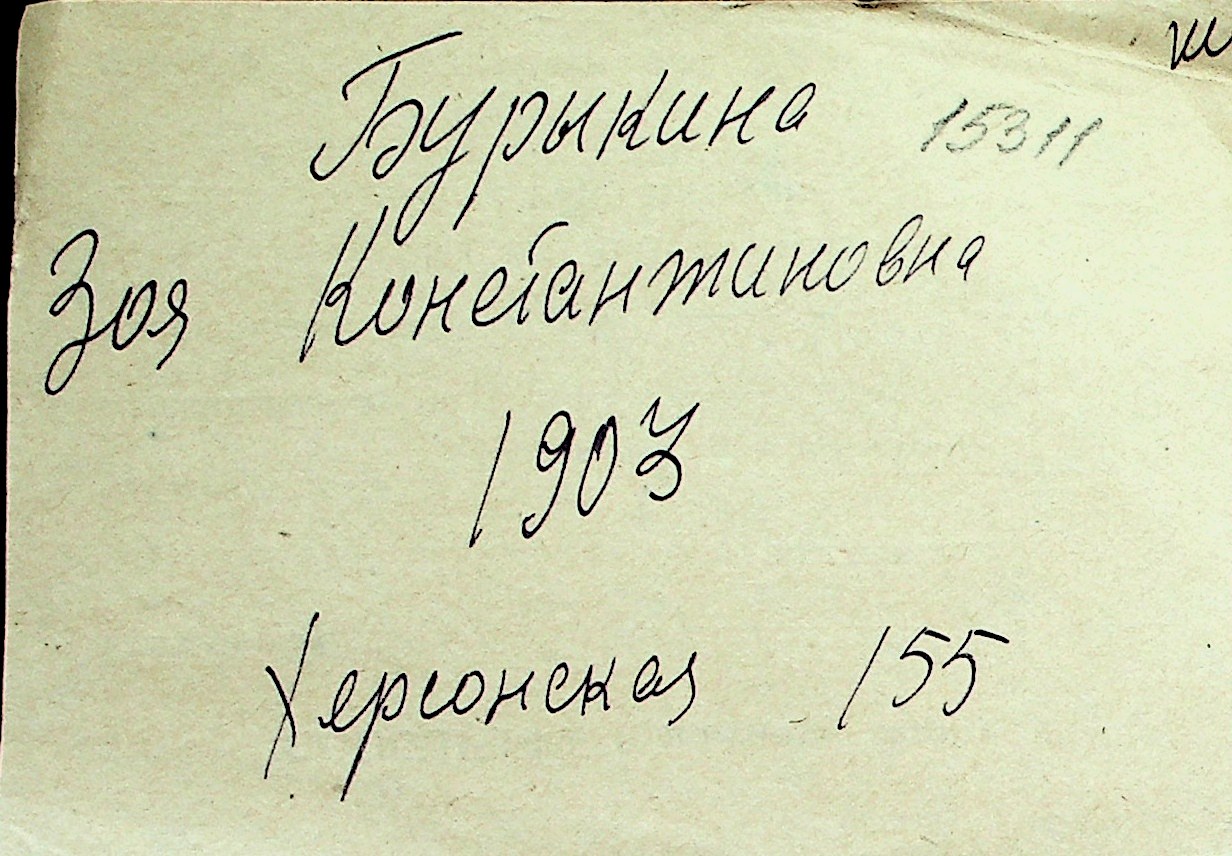 Бурыкина 15311
Зоя Константиновна
1903
Херсонская 155